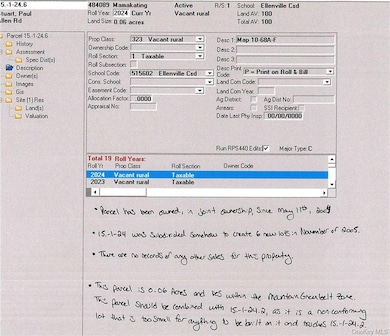 15.-1-24.6
484089 Mamakating Active R/S: 1 School: Ellenville Csd
Stuart, Paul Roll Year: 2024 Curr Yr Vacant rural Land AV: 100
Allen Rd Land Size: 0.06 acres Total AV: 100
Parcel 15.-1-24.6
History
Assessment
Spec Dist(s)
Description
Owner(s)
Images
Gis
Site (1) Res
Land(s)
Valuation
Prop Class: 323 Vacant rural
Ownership Code:
Roll Section: 1 Taxable
Roll Subsection:
School Code: 515602 Ellenville Csd
Cons. School
Easement Code:
Allocation Factor: .0000
Appraisal No:
Desc 1: Map 10-68A-F
Desc 2:
Desc 3:
Desc Print Code: P = Print on Roll & Bill
Land Com Code:
Land Com Year:
Ag District: Ag Dist No:
Arrears: SSI Recipient:
Date Last Phy Insp: 00/00/0000
Run RPS440 Edits Major Type: C
Total 19 Roll Years:
Roll Yr Prop Class Roll Section Owner Code
2024 Vacant rural Taxable
2023 Vacant rural Taxable
• Parcel has been owned, in joint ownership, since May 11th, 2004
• 15.-1-24 was subdivided somehow to create 6 new lots in November of 2005.
• There are no records of any other sales for this property.
• This parcel is 0.06 Acres and lies within the Mountain Greenbelt Zone.
This parcel should be combined with 15.-1-24.2, as it is a nonconforming
lot that is too small for anything to be built on it and touches 15.-1-24.2.
OneKey MLS